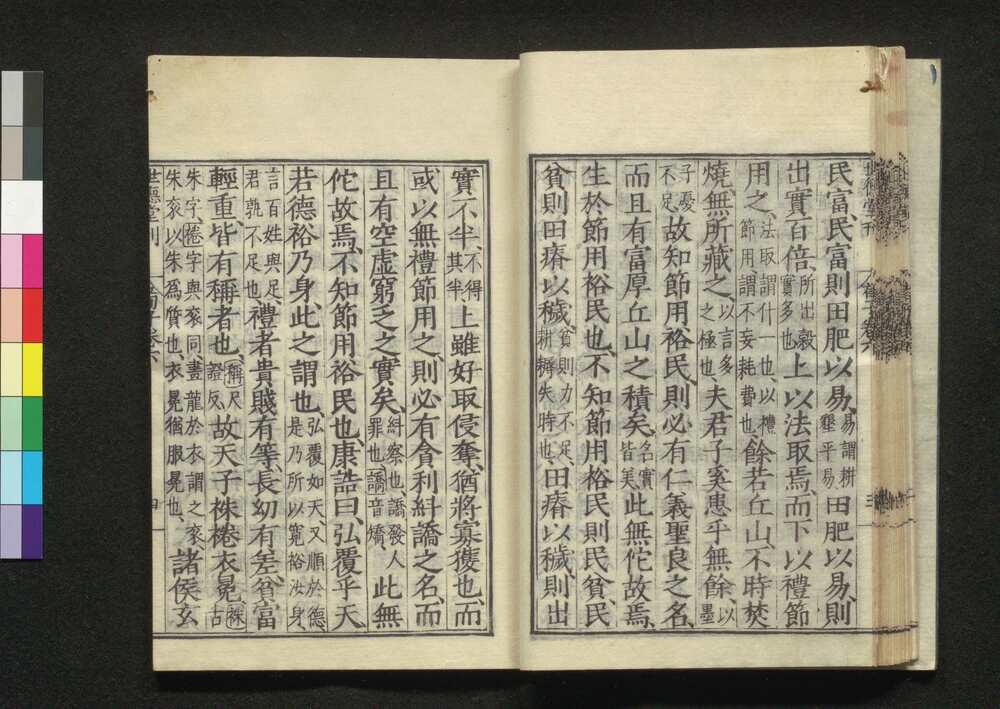 世德堂刊
民富、民富則田肥以易、易謂耕墾平易田肥以易、則
出實百倍、所出穀實多也上以法取焉、而下以禮節
用之、法取謂什一也、以禮節用謂不妄耗費也餘若丘山、不時焚
燒、無所藏之、以言多之極也夫君子奚患乎無餘、以墨
子憂不足故知節用裕民、則必有仁義聖良之名、
而且有富厚丘山之積矣、名實皆美、此無佗故焉、
生於節用裕民也、不知節用裕民則民貧、民
貧則田瘠以穢、貧則力不足、耕耨失時也、田瘠以穢、則出
實不半、不得其半上雖好取侵奪、猶將寡獲也、而
或以無禮節用之、則必有貪利糾譑之名、而
且有空虛窮乏之實矣、糾察也、譑發人罪也、譑音矯、此無
佗故焉、不知節用裕民也、康誥曰、弘覆乎天
若德裕乃身、此之謂也、弘覆如天、又順於德、是乃所以寬裕汝身、
言百姓與足、君孰不足也、禮者貴賤有等、長幼有差、貧富
輕重、皆有稱者也、稱尺證反、故天子袾裷衣冕、袾古
朱字、裷字與衮同、畫龍於衣謂之衮、朱衮以朱爲質也、衣冕猶服冕也、諸侯玄
世德堂刊
四